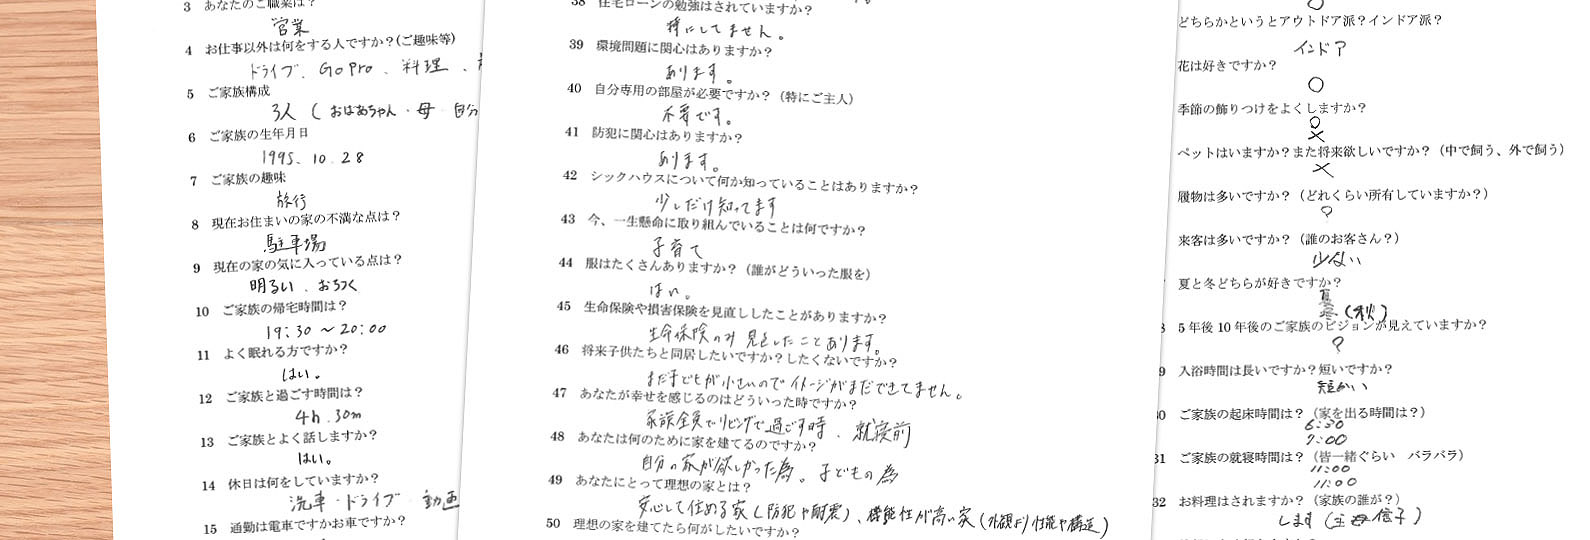 3 あなたのご職業は？
営業
4 お仕事以外は何をする人ですか？(ご趣味等)
ドライブ、GoPro、料理、
5 ご家族構成
3人（おばあちゃん・母・自分
6 ご家族の生年月日
1995.10.28
7 ご家族の趣味
旅行
8 現在お住まいの家の不満な点は？
駐車場
9 現在の家の気に入っている点は？
明るい、おちつく
10 ご家族の帰宅時間は？
19:30〜20:00
11 よく眠れる方ですか？
はい。
12 ご家族と過ごす時間は？
4h.30m
13 ご家族とよく話しますか？
はい。
14 休日は何をしていますか？
洗車・ドライブ・動画
15 通勤は電車ですかお車ですか？
38 住宅ローンの勉強はされていますか？
特にしてません。
39 環境問題に関心はありますか？
あります。
40 自分専用の部屋が必要ですか？（特にご主人）
不要です。
41 防犯に関心はありますか？
あります。
42 シックハウスについて何か知っていることはありますか？
少しだけ知ってます
43 今、一生懸命に取り組んでいることは何ですか？
子育て
44 服はたくさんありますか？（誰がどういった服を）
はい。
45 生命保険や損害保険を見直ししたことがありますか？
生命保険のみ見直したことあります。
46 将来子供たちと同居したいですか？したくないですか？
まだ子どもが小さいのでイメージがまだできてません。
47 あなたが幸せを感じるのはどういった時ですか？
家族全員でリビングで過ごす時、就寝前
48 あなたは何のために家を建てるのですか？
自分の家が欲しかった為。子どもの為
49 あなたにとって理想の家とは？
安心して住める家（防犯や耐震）、機能性が高い家（外観より性能や構造）
50 理想の家を建てたら何がしたいですか？
どちらかというとアウトドア派？インドア派？
インドア
花は好きですか？
○
季節の飾りつけをよくしますか？
×
ペットはいますか？また将来欲しいですか？（中で飼う、外で飼う）
×
履物は多いですか？（どれくらい所有していますか？）
?
来客は多いですか？（誰のお客さん？）
少ない
夏と冬どちらが好きですか？
冬（秋）
5年後10年後のご家族のビジョンが見えていますか？
?
9 入浴時間は長いですか？短いですか？
短かい
30 ご家族の起床時間は？（家を出る時間は？）
6:30
7:00
31 ご家族の就寝時間は？（皆一緒ぐらい　バラバラ）
11:00
11:00
32 お料理はされますか？（家族の誰が？）
します